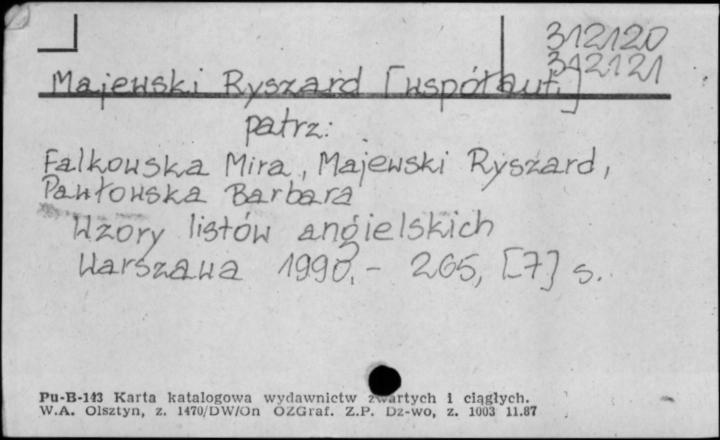 312120
312121
Majewski Ryszard [współaut.]
patrz:
Falkowska Mira, Majewski Ryszard,
Pawłowska Barbara
Wzory listów angielskich
Warszawa 1990. - 265, [7] s.
Pu-B-143 Karta katalogowa wydawnictw zwartych i ciągłych.
W.A. Olsztyn, z. 1470/DW/On OZGraf. Z.P. Dz-wo, z. 1003 11.87